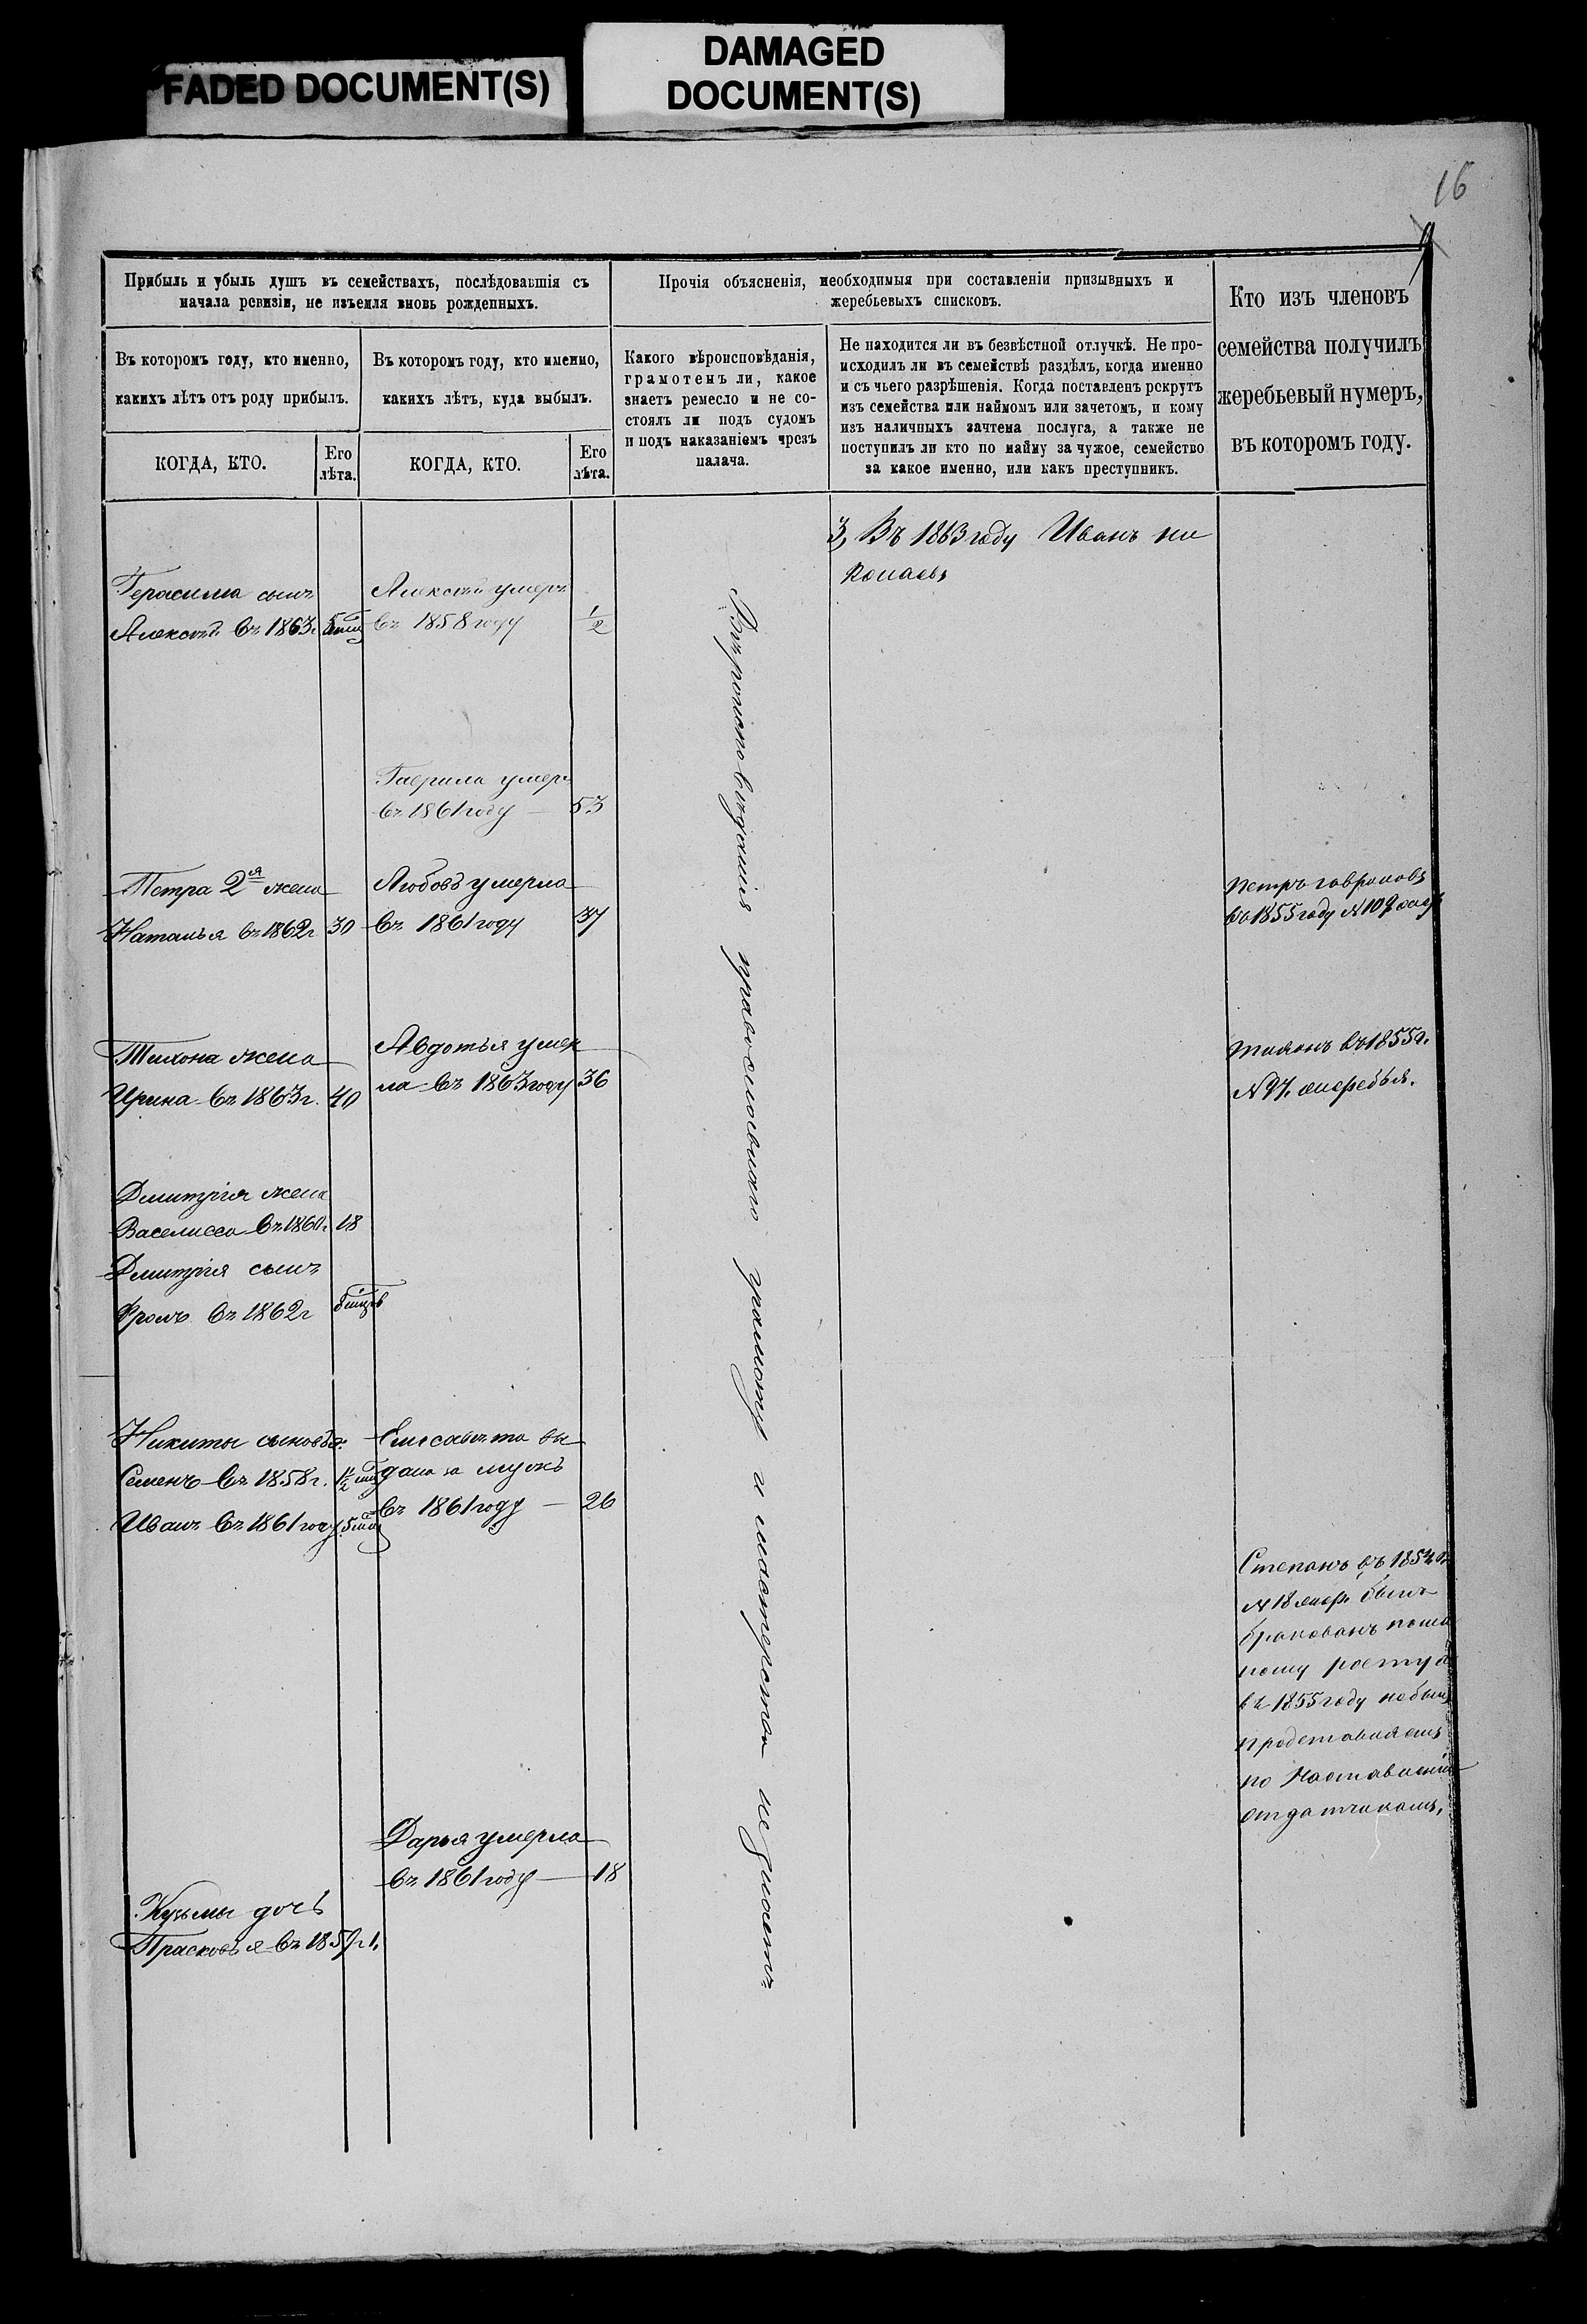 FADED DOCUMENT(S)
DAMAGED
DOCUMENT(S)
16
Прибыль и убыль душъ въ семействахъ, послѣдовавшія съ
начала ревизіи, не изъемля вновь рожденныхъ.
Въ которомъ году, кто именно,
какихъ лѣтъ отъ роду прибылъ.
КОГДА, КТО.
Его
лѣта.
Въ которомъ году, кто именно,
какихъ лѣтъ, куда выбылъ.
КОГДА, КТО.
Его
лѣта.
Прочія объясненія, необходимыя при составленіи призывныхъ и
жеребьевыхъ списковъ.
Какого вѣроисповѣданія,
грамотенъ ли, какое
знаетъ ремесло и не со-
стоялъ ли подъ судомъ
и подъ наказаніемъ чрезъ
палача.
Не находится ли въ безвѣстной отлучкѣ. Не про-
исходилъ ли въ семействѣ раздѣлъ, когда именно
и съ чьего разрѣшенія. Когда поставленъ рекрутъ
изъ семейства или наймомъ или зачетомъ, и кому
изъ наличныхъ зачтена послуга, а также не
поступилъ ли кто по найму за чужое, семейство
за какое именно, или какъ преступникъ.
Кто изъ членовъ
семейства получилъ
жеребьевый нумеръ,
въ которомъ году.
3, Въ 1863 году Иванъ Ни
Герасима сынъ
Алексѣй въ 1863г.
Алексѣй умеръ
въ 1858 году 1/2
Гаврила умеръ
въ 1861 году — 53
Петра 2я жена
Наталья въ 1862г. 30
Любовь умерла
въ 1861 году 37
Петръ Гавриловъ
въ 1855 году №
Тихона жена
Ирина въ 1863г. 40
Авдотья умер
ла въ 1863 году 36
Тихонъ въ 1855г.
№ жеребья.
Дмитрія жена
Василисса въ 1860г. 18
Дмитрія сынъ
Фролъ въ 1862г
Никиты сыновья:
Семенъ въ 1858г.
Иванъ въ 1861 году
Елисавета вы
дана за мужъ
въ 1861 году — 26
Степанъ въ 1854г.
№ 18 жер. былъ
бракованъ по ма
лому росту а
въ 1855 году не былъ
представленъ
по
отдатчикомъ.
Дарья умерла
въ 1861 году — 18
Кузьмы дочь
Прасковья въ
Вѣроисповѣданія православнаго грамоты и мастерства не знаетъ